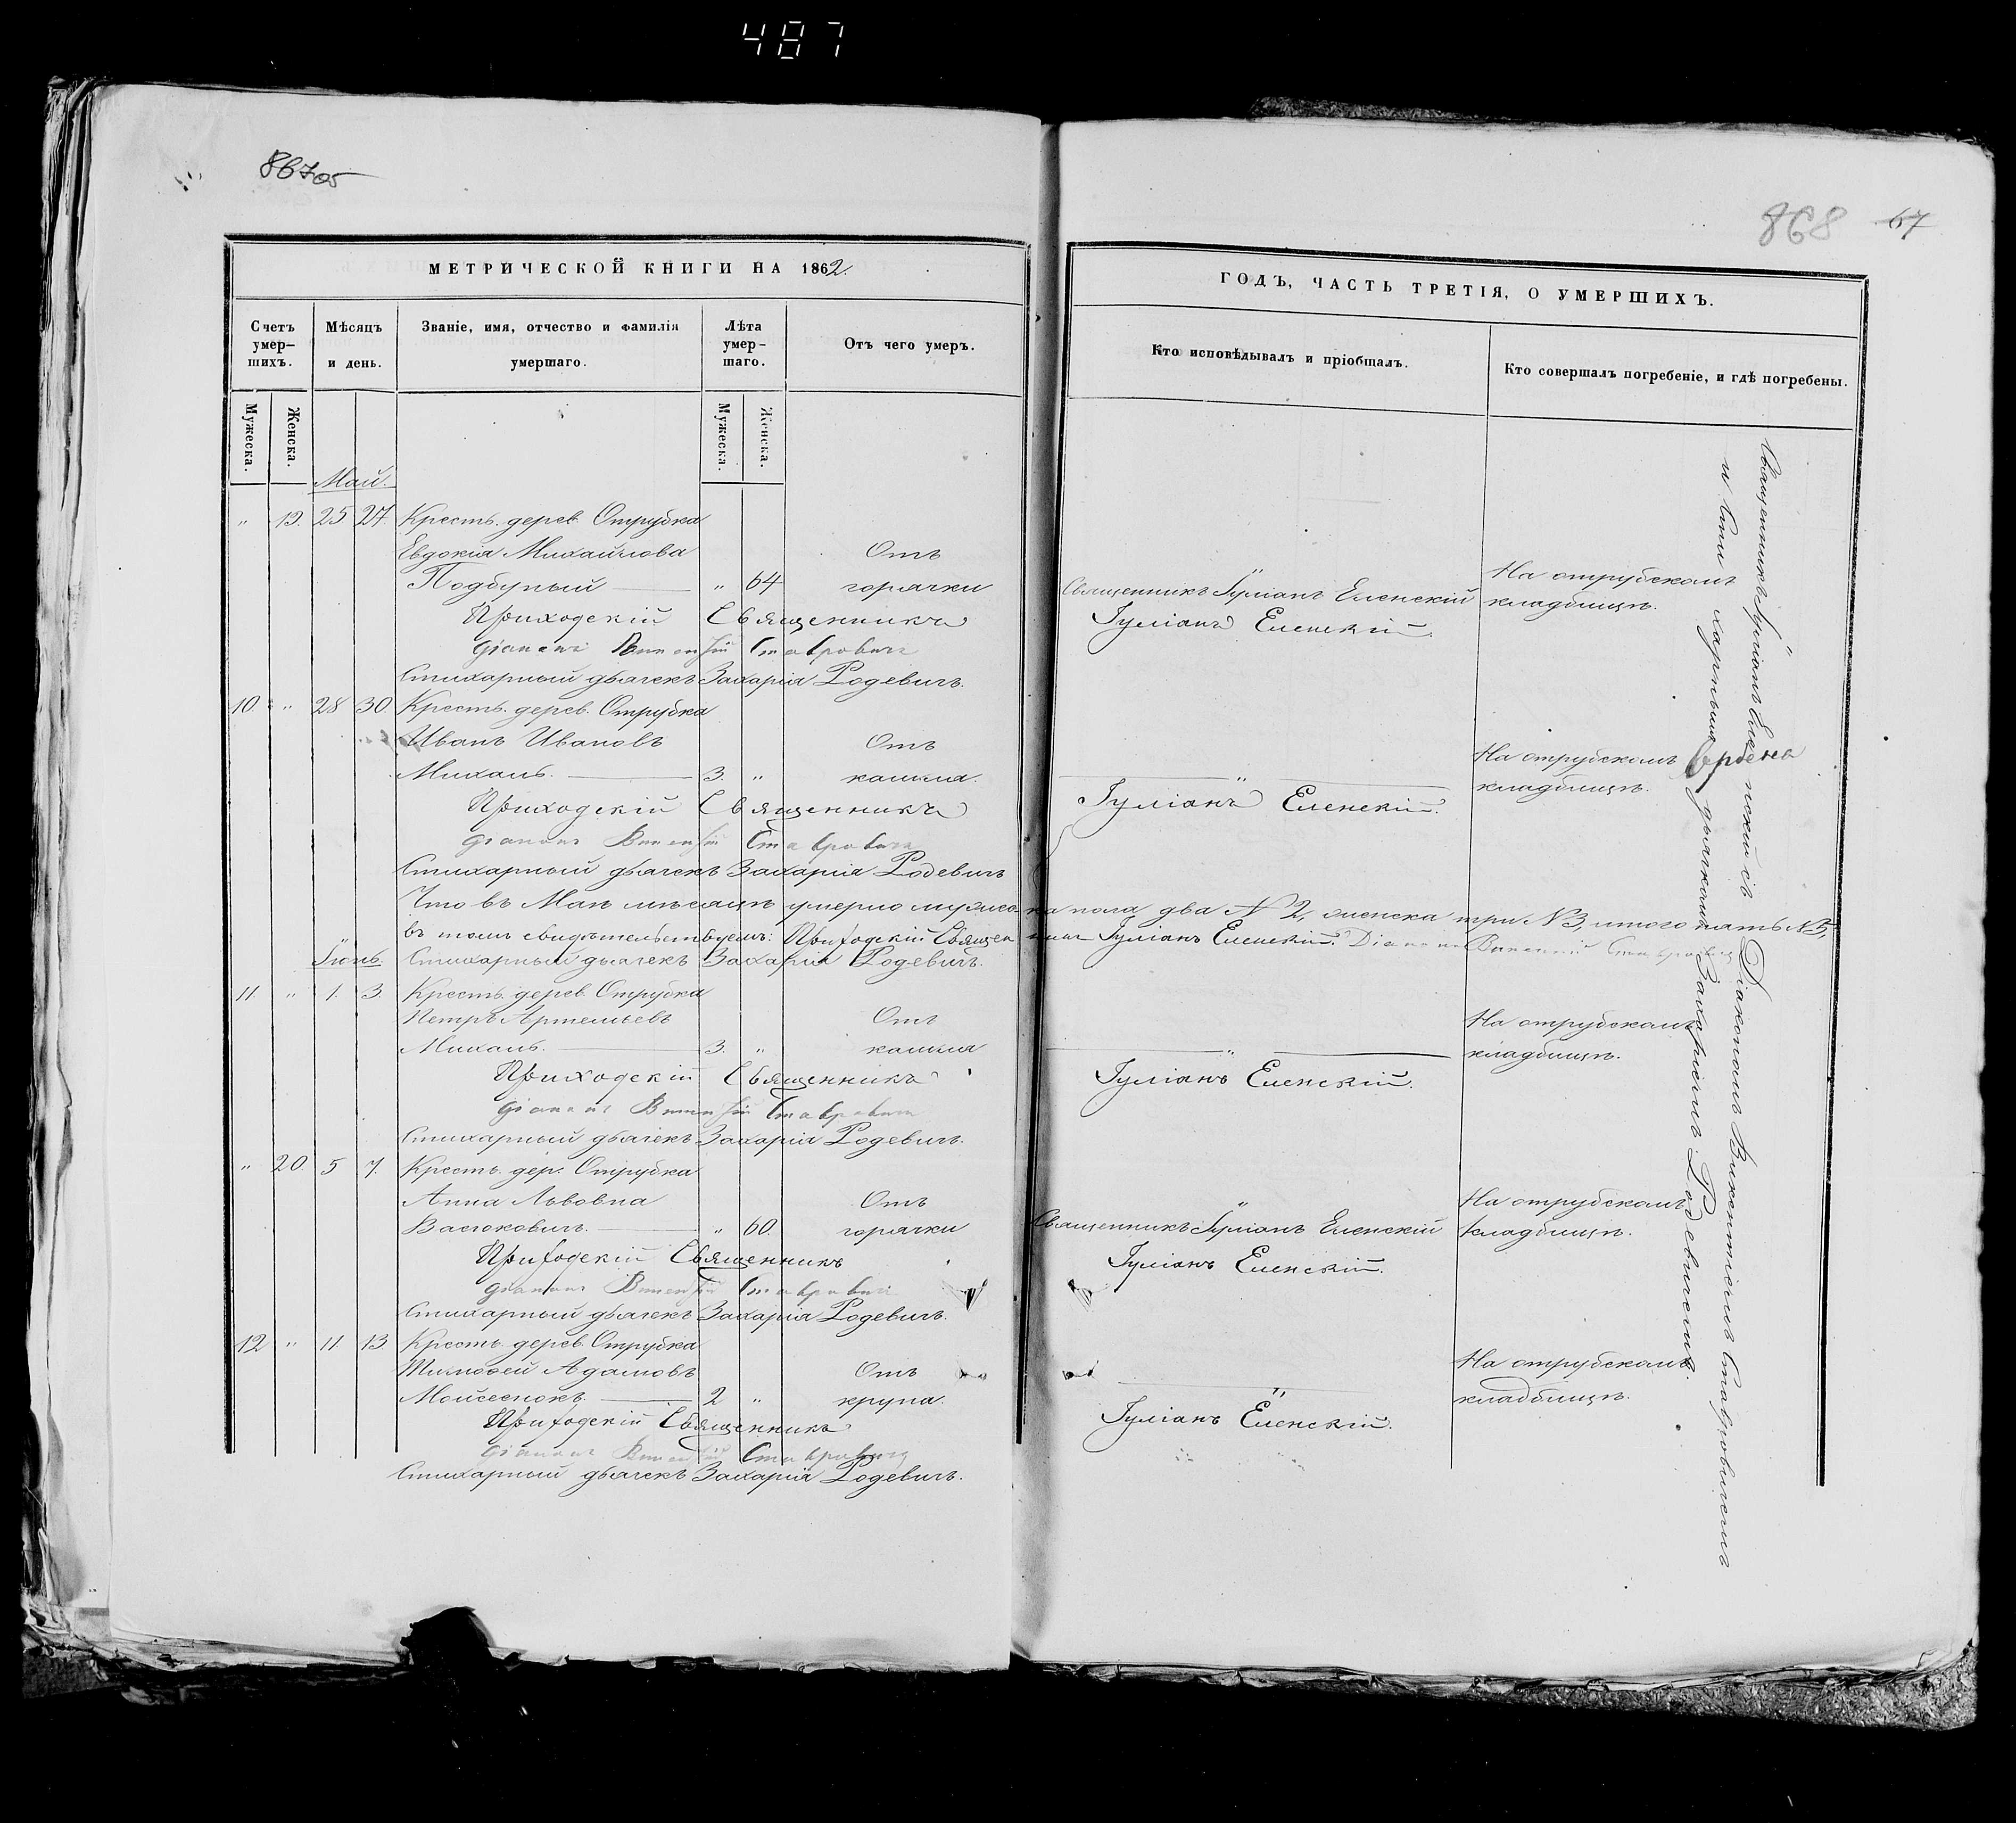 487
86705
868 67
МЕТРИЧЕСКОЙ КНИГИ НА 1862.
Счетъ умер-шихъ.
Мѣсяцъ и день.
Званіе, имя, отчество и фамилія умершаго.
Лѣта умер-шаго.
Отъ чего умеръ.
Мужеска.
Женска.
Мужеска.
Женска.
Май.
" 19. 25 27 Кресть. дерев. Отрубка
Евдокія Михайлова Отъ
Подбупый " 64 горячки
Приходскій Священникъ
Діаконъ Викентій Ставровичъ
Стихарный дьячекъ Захарія Родевичъ.
10. " 28 30. Кресть. дерев. Отрубка
Иванъ Ивановъ Отъ
Михаль. 3. " кашля.
Приходскій Священникъ
Діаконъ Викентій Ставровичъ
Стихарный дьячекъ Захарія Родевичъ
Что въ Маѣ мѣсяцѣ умерло мужес-
въ томъ свидѣтельствуемъ: Приходскій Священ
Іюнь. Стихарный дьячекъ Захарія Родевичъ.
11. " 1. 3. Кресть. дерев. Отрубка
Петръ Артемьевъ Отъ
Михаль. 3. " кашля
Приходскій Священникъ
Діаконъ Викентій Ставровичъ
Стихарный дьячекъ Захарія Родевичъ.
" 20. 5 7. Кресть. дер. Отрубка
Анна Львовна Отъ
Васюковичъ. " 60. горячки
Приходскій Священникъ
Діаконъ Викентій Ставровичъ
Стихарный дьячекъ Захарія Родевичъ.
12 " 11. 13. Кресть. дерев. Отрубка
Тимоѳей Адамовъ Отъ
Мойсеюкъ. 2 " крупа.
Приходскій Священникъ
Діаконъ Викентій Ставровичъ
Стихарный дьячекъ Захарія Родевичъ.
ГОДЪ, ЧАСТЬ ТРЕТІЯ, О УМЕРШИХЪ.
Кто исповѣдывалъ и пріобщалъ.
Кто совершалъ погребеніе, и гдѣ погребены.
Священникъ Іуліанъ Еленскій
На отрубскомъ
кладбищѣ.
Іуліанъ Еленскій.
"
На отрубскомъ
кладбищѣ.
Іуліанъ Еленскій.
ка пола два №2, женска три №3, итого пять №5,
никъ Іуліанъ Еленскій. Діаконъ Викентій Ставровичъ
"
На отрубскомъ
кладбищѣ.
Іуліанъ Еленскій.
Священникъ Іуліанъ Еленскій
На отрубскомъ
кладбищѣ.
Іуліанъ Еленскій.
"
На отрубскомъ
кладбищѣ.
Іуліанъ Еленскій.
Священникъ Іуліанъ Еленскій съ Діакономъ Викентіемъ Ставровичемъ
и Стихарнымъ дьячкомъ Захаріемъ Родевичемъ.